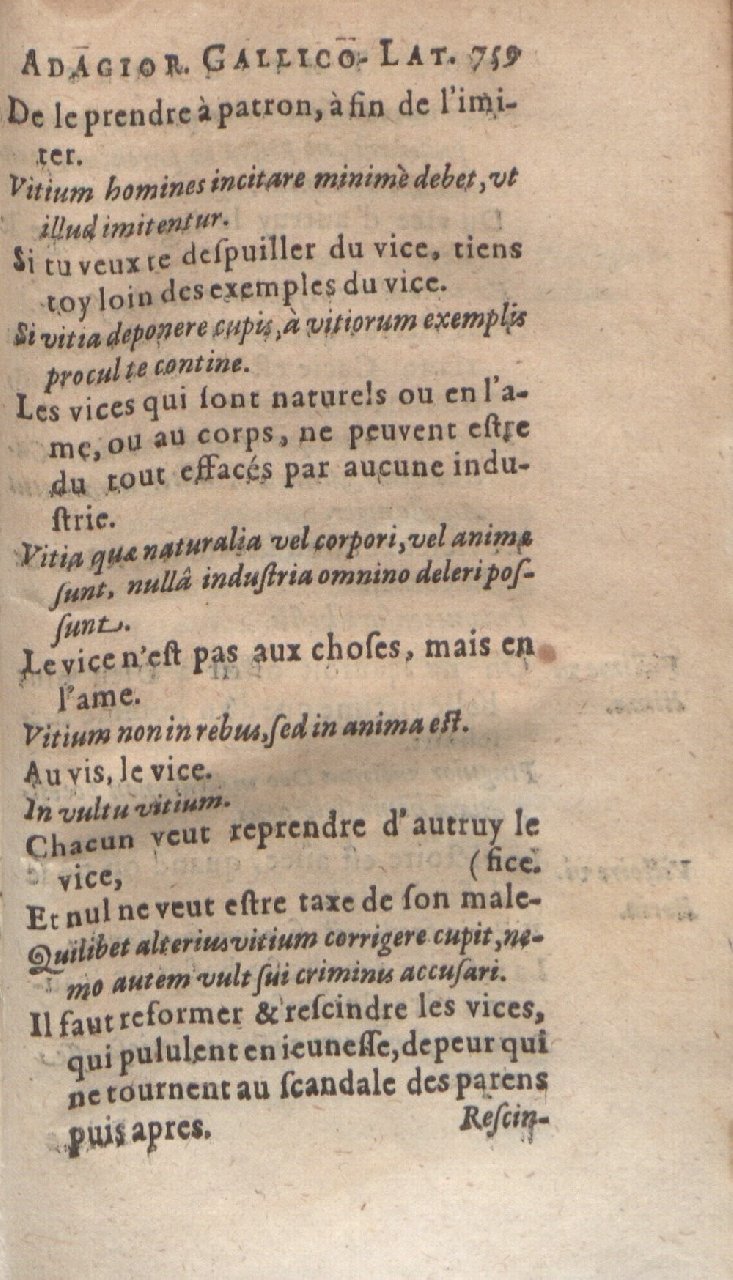 ADAGIOR. GALLICŌ-LAT. 759
De le prendre à patron, à fin de l'imi-
ter.
Vitium homines incitare minimè debet, vt
illud imitentur.
Si tu veux te deſpuiller du vice, tiens
toy loin des exemples du vice.
Si vitia deponere cupis, à vitiorum exemplis
procul te contine.
Les vices qui ſont naturels ou en l'a-
me, ou au corps, ne peuvent eſtre
du tout effacés par aucune indu-
ſtrie.
Vitia quæ naturalia vel corpori, vel animæ
ſunt, nullâ induſtria omnino deleri poſ-
ſunt.
Le vice n'eſt pas aux choſes, mais en
l'ame.
Vitium non in rebus, ſed in anima eſt.
Au vis, le vice.
In vultu vitium.
Chacun veut reprendre d'autruy le
vice, (fice.
Et nul ne veut eſtre taxe de ſon male-
Quilibet alterius vitium corrigere cupit, ne-
mo autem vult ſui criminis accuſari.
Il faut reformer & reſcindre les vices,
qui pululent en ieuneſſe, de peur qui
ne tournent au ſcandale des parens
puis apres. Reſcin-